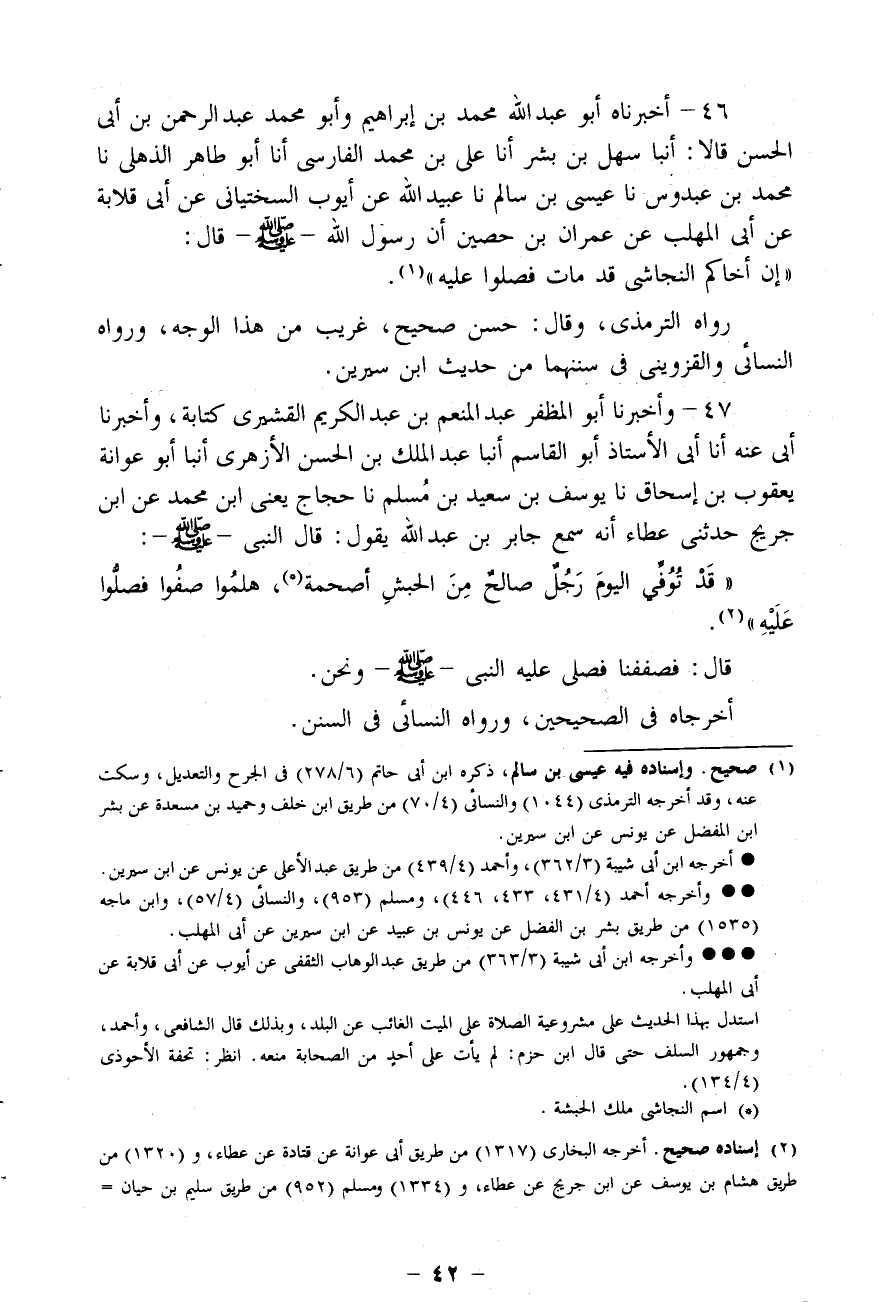 ٤٦ – أخبرناه أبو عبدالله محمد بن إبراهيم وأبو محمد عبدالرحمن بن أبى
الحسن قالا: أنبا سهل بن بشر أنا على بن محمد الفارسى أنا أبو طاهر الذهلى نا
محمد بن عبدوس نا عيسى بن سالم نا عبيدالله عن أيوب السختيانى عن أبى قلابة
عن أبى المهلب عن عمران بن حصين أن رسول الله – ﷺ – قال:
«إن أخاكم النجاشى قد مات فصلوا عليه»(١).
رواه الترمذى، وقال: حسن صحيح، غريب من هذا الوجه، ورواه
النسائى والقزوينى فى سننهما من حديث ابن سيرين.
٤٧ – وأخبرنا أبو المظفر عبدالمنعم بن عبدالكريم القشيرى كتابة، وأخبرنا
أبى عنه أنا أبى الأستاذ أبو القاسم أنبا عبدالملك بن الحسن الأزهرى أنبا أبو عوانة
يعقوب بن إسحاق نا يوسف بن سعيد بن مُسلم نا حجاج يعنى ابن محمد عن ابن
جريج حدثنى عطاء أنه سمع جابر بن عبدالله يقول: قال النبى – ﷺ –:
« قَدْ تُوُفِّي اليومَ رَجُلٌ صالحٌ مِنَ الحبشِ أصحمة(٥)، هلمُوا صفُوا فصلُّوا
عَلَيْهِ»(٢).
قال: فصففنا فصلى عليه النبى – ﷺ – ونحن.
أخرجاه فى الصحيحين، ورواه النسائى فى السنن.
(١) صحيح. وإسناده فيه عيسى بن سالم، ذكره ابن أبى حاتم (٢٧٨/٦) فى الجرح والتعديل، وسكت
عنه، وقد أخرجه الترمذى (١٠٤٤) والنسائى (٧٠/٤) من طريق ابن خلف وحميد بن مسعدة عن بشر
ابن المفضل عن يونس عن ابن سيرين.
● أخرجه ابن أبى شيبة (٣٦٢/٣)، وأحمد (٤٣٩/٤) من طريق عبدالأعلى عن يونس عن ابن سيرين.
●● وأخرجه أحمد (٤٣١/٤، ٤٣٣، ٤٤٦)، ومسلم (٩٥٣)، والنسائى (٥٧/٤)، وابن ماجه
(١٥٣٥) من طريق بشر بن الفضل عن يونس بن عبيد عن ابن سيرين عن أبى المهلب.
●●● وأخرجه ابن أبى شيبة (٣٦٣/٣) من طريق عبدالوهاب الثقفى عن أيوب عن أبى قلابة عن
أبى المهلب.
استدل بهذا الحديث على مشروعية الصلاة على الميت الغائب عن البلد، وبذلك قال الشافعى، وأحمد،
وجمهور السلف حتى قال ابن حزم: لم يأت على أحدٍ من الصحابة منعه. انظر: تحفة الأحوذى
(١٣٤/٤).
(*) اسم النجاشى ملك الحبشة .
(٢) إسناده صحيح. أخرجه البخارى (١٣١٧) من طريق أبى عوانة عن قتادة عن عطاء، و (١٣٢٠) من
طريق هشام بن يوسف عن ابن جريج عن عطاء، و (١٣٣٤) ومسلم (٩٥٢) من طريق سليم بن حيان =
– ٤٢ –